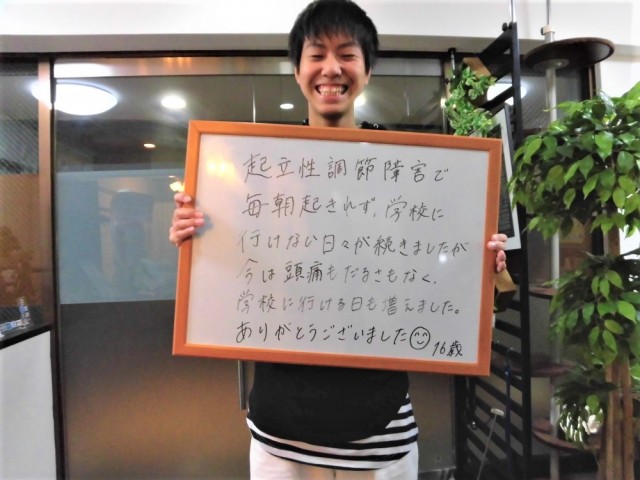 起立性調節障害で
毎朝起きれず、学校に
行けない日々が続きましたが
今は頭痛もだるさもなく、
学校に行ける日も増えました。
ありがとうございました☺ 16歳